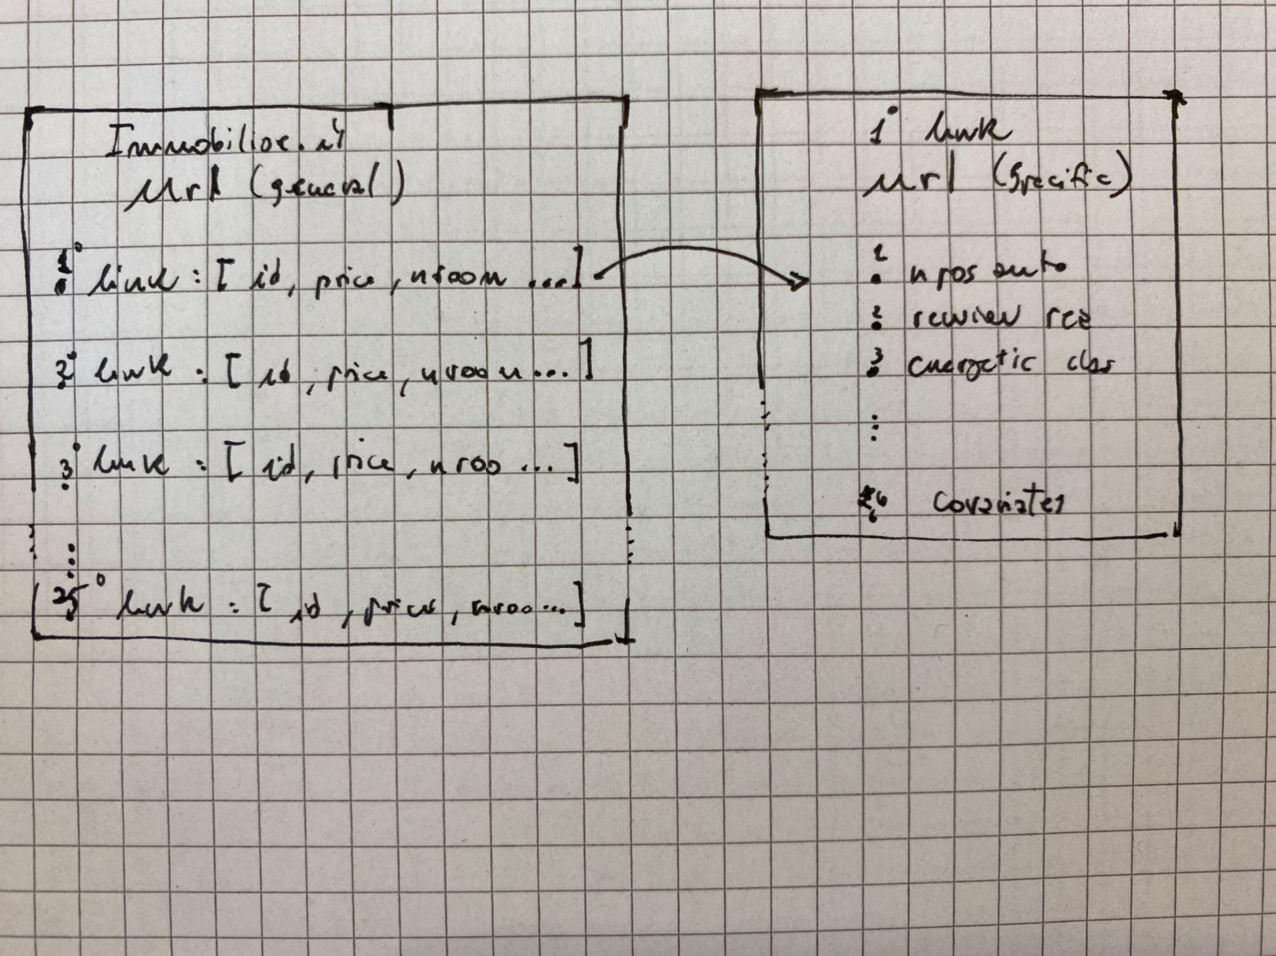 Immobiliare.it
url (general)
1° link : [ id, price, nroom ...]
2° link : [ id, price, nroom ...]
3° link : [ id, price, nroo ...]
...
25° link : [ id, prices, nroo...]
1° link
url (specific)
1 n pos auto
2 review
3 energetic class
covariates